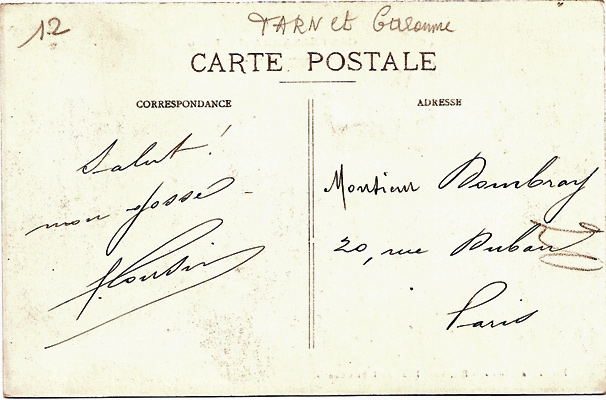 12
TARN et Garonne
CARTE POSTALE
CORRESPONDANCE
Salut !
mon gosse
ADRESSE
Monsieur Dombray
20, rue Duban
Paris